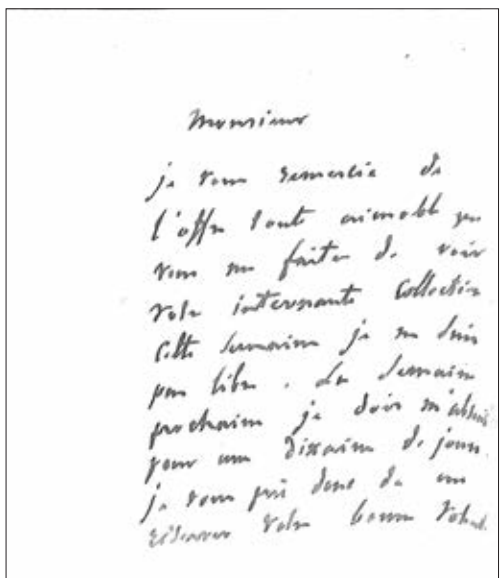 Monsieur
je vous remercie de
l'offre toute aimable que
vous me faites de voir
votre interessante collection
cette semaine je ne suis
pas libre. La semaine
prochaine je dois
pour une dixaine de jours.
je vous prie donc de me
réserver votre bonne